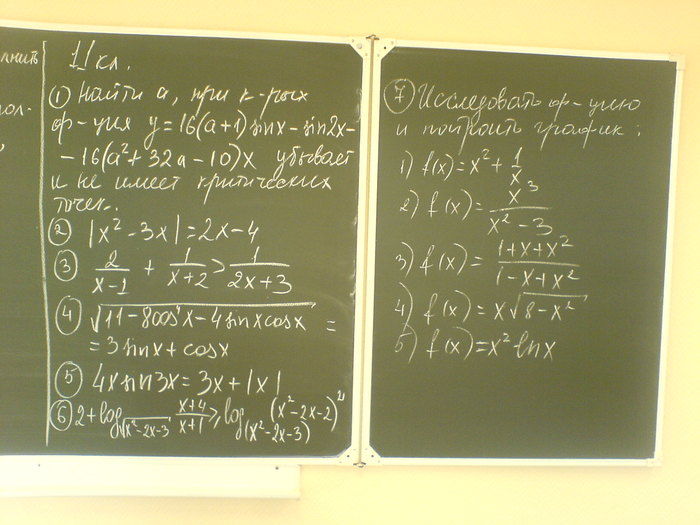 лнить
ол-
11 кл.
① Найти a, при к-рых
ф-ция y=16(a+1)sinx-sin2x-
-16(a²+32a-10)x убывает
и не имеет критических
точек.
② |x²-3x|=2x-4
③ 2/(x-1) + 1/(x+2) > 1/(2x+3)
④ √(11-8cos⁴x-4sinxcosx) =
= 3sinx+cosx
⑤ 4xsin3x=3x+|x|
⑥ 2+log_{√(x²-2x-3)} (x+4)/(x+1) ≥ log_{(x²-2x-3)} (x²-2x-2)²
⑦ Исследовать ф-цию
и построить график:
1) f(x)=x²+1/x
2) f(x)=x³/(x²-3)
3) f(x)=(1+x+x²)/(1-x+x²)
4) f(x)=x√(8-x²)
5) f(x)=x²lnx